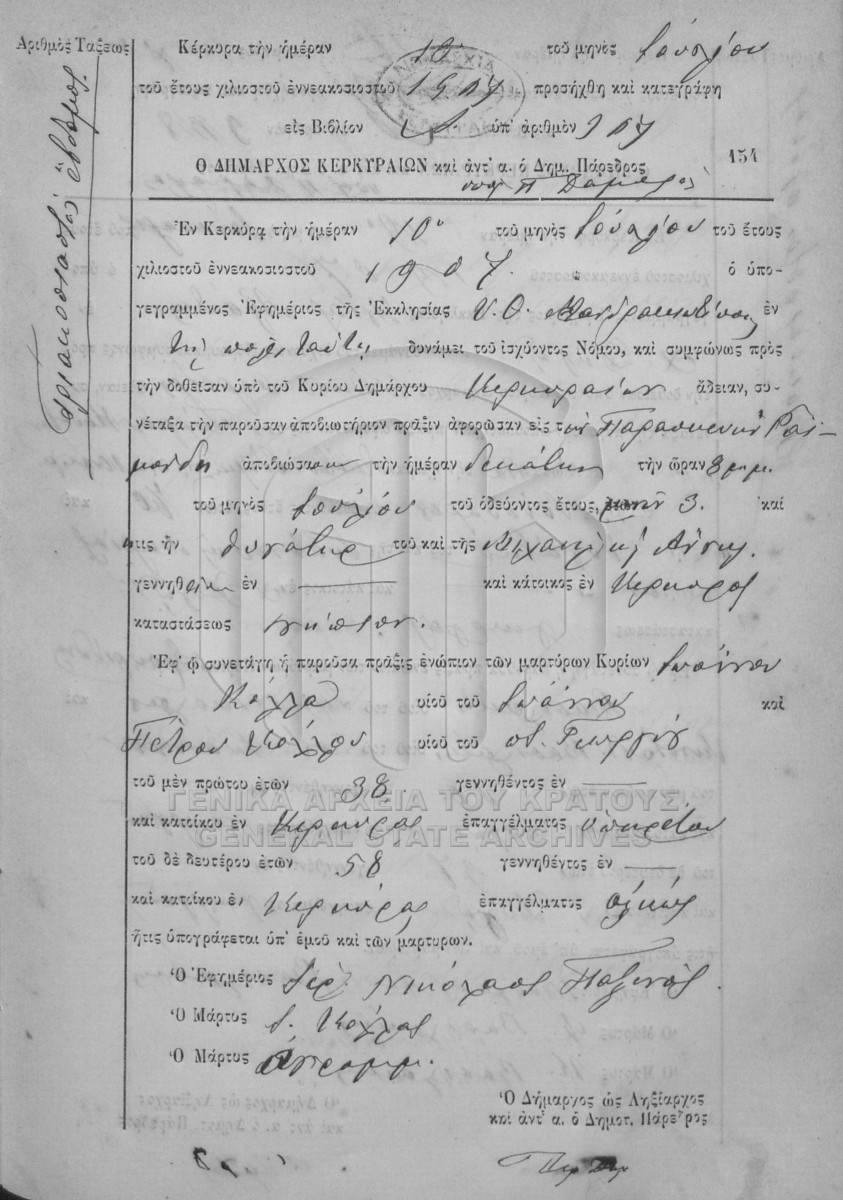 Ἀριθμὸς Τάξεως
Τριακοσιοστὸς ἕβδομος.
Κέρκυρα τὴν ἡμέραν 10 τοῦ μηνὸς Ἰουλίου
τοῦ ἔτους χιλιοστοῦ ἐννεακοσιοστοῦ 1907 προσήχθη καὶ κατεγράφη
εἰς Βιβλίον ὑπ' ἀριθμὸν
Ο ΔΗΜΑΡΧΟΣ ΚΕΡΚΥΡΑΙΩΝ καὶ ἀντ' α. ὁ Δημ. Πάρεδρος
154
Ἐν Κερκύρᾳ τὴν ἡμέραν 10 τοῦ μηνὸς Ἰουλίου τοῦ ἔτους
χιλιοστοῦ ἐννεακοσιοστοῦ 1907. ὁ ὑπο-
γεγραμμένος Ἐφημέριος τῆς Ἐκκλησίας Υ. Θ. Μανδρακιωτίσσης ἐν
τῇ πόλει ταύτῃ δυνάμει τοῦ ἰσχύοντος Νόμου, καὶ συμφώνως πρὸς
τὴν δοθεῖσαν ὑπὸ τοῦ Κυρίου Δημάρχου Κερκυραίων ἄδειαν, συ-
νέταξα τὴν παροῦσαν ἀποβιωτήριον πρᾶξιν ἀφορῶσαν εἰς τὴν Παρασκευὴν Ραϊ-
μόνδη ἀποβιώσασαν τὴν ἡμέραν δεκάτην τὴν ὥραν 3 μ.μ.
τοῦ μηνὸς Ἰουλίου τοῦ ὁδεύοντος ἔτους, μηνῶν 3. καὶ
ἥτις ἦν θυγάτηρ τοῦ καὶ τῆς Μιχαὴλ καὶ
γεννηθεῖσαν ἐν — καὶ κάτοικος ἐν Κερκύρᾳ
καταστάσεως νήπιον.
Ἐφ' ᾧ συνετάγη ἡ παροῦσα πρᾶξις ἐνώπιον τῶν μαρτύρων Κυρίων Ἰωάννου
Κόλλα υἱοῦ τοῦ Ἰωάννου καὶ
Πέτρου Κόλλα υἱοῦ τοῦ Γεωργίου
τοῦ μὲν πρώτου ἐτῶν 38. γεννηθέντος ἐν —
καὶ κατοίκου ἐν Κερκύρᾳ ἐπαγγέλματος ὑπηρέτου
τοῦ δὲ δευτέρου ἐτῶν 58 γεννηθέντος ἐν —
καὶ κατοίκου ἐν Κερκύρᾳ ἐπαγγέλματος
ἥτις ὑπογράφεται ὑπ' ἐμοῦ καὶ τῶν μαρτύρων.
Ὁ Ἐφημέριος Ἱερ. Νικόλαος Παξινὸς.
Ὁ Μάρτυς Ἰ. Κόλλας
Ὁ Μάρτυς ἀγράμμ.
Ὁ Δήμαρχος ὡς Ληξίαρχος
καὶ ἀντ' α. ὁ Δημοτ. Πάρεδρος
ΓΕΝΙΚΑ ΑΡΧΕΙΑ ΤΟΥ ΚΡΑΤΟΥΣ
GENERAL STATE ARCHIVES